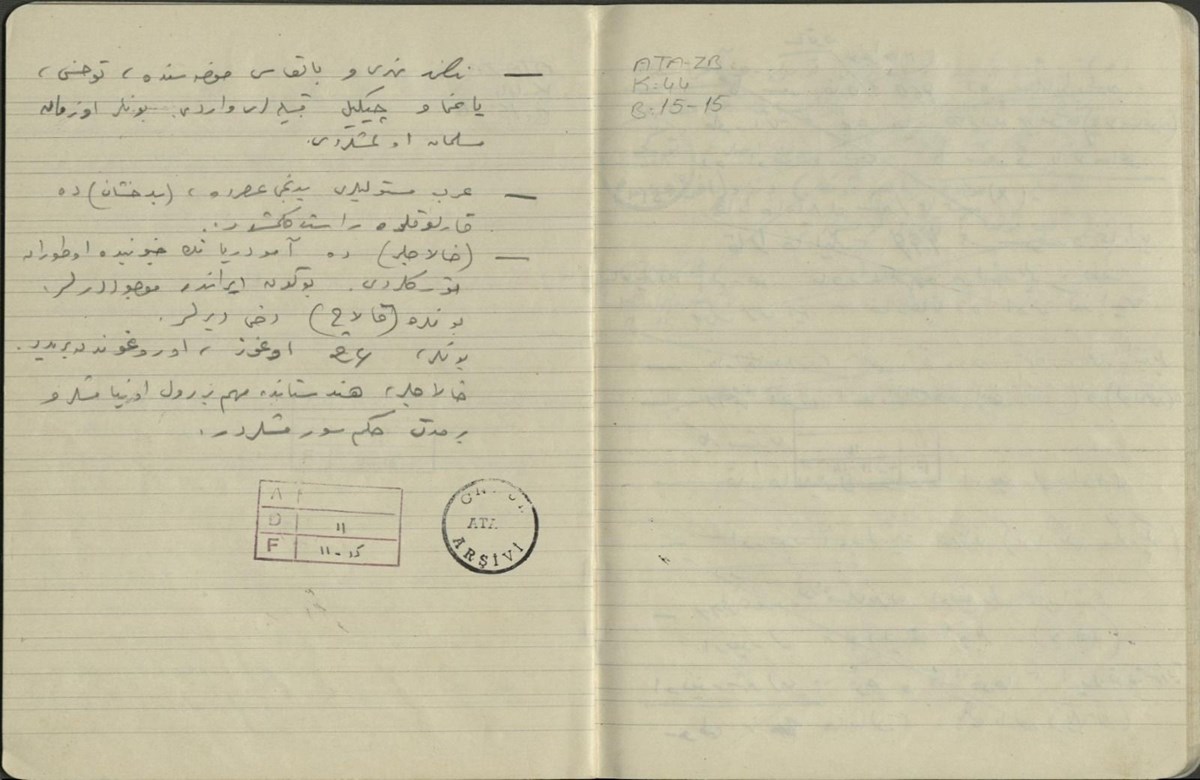 — نهری و بالقاش حوضه سنده، توخسی،
یاغما و چیکیل قبیله لری واردی. بونلر او زمان
مسلمان اولمشلردی.
— عرب مستولیلری یدنجی عصرده، (بدخشان) ده
قارلوقلره راست كلمشلردر.
— (خالاجلر) ده آمودریانك جنوبنده اوطوران
تورکلردی. بوكون ایرانده موجوددرلر.
بونلره (قالاچ) دخی دیرلر.
بونلر، اوغوز، اوروغوندندر.
خالاجلر، هندستانده مهم بر رول اوینامشلر و
بر مدت حكم سورمشلردر.
A
D ١١
F ١١-١٥
ATA
ARŞİVİ
ATA-ZB
K:44
B:15-15